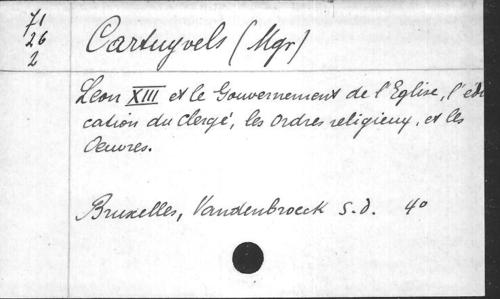 71
26
2
Cartuyvels (Mgr)
Léon XIII et le Gouvernement de l'Eglise, l'édu
cation du clergé, les ordres religieux, et les
Oeuvres.
Bruxelles, Vandenbroeck s.d. 4°